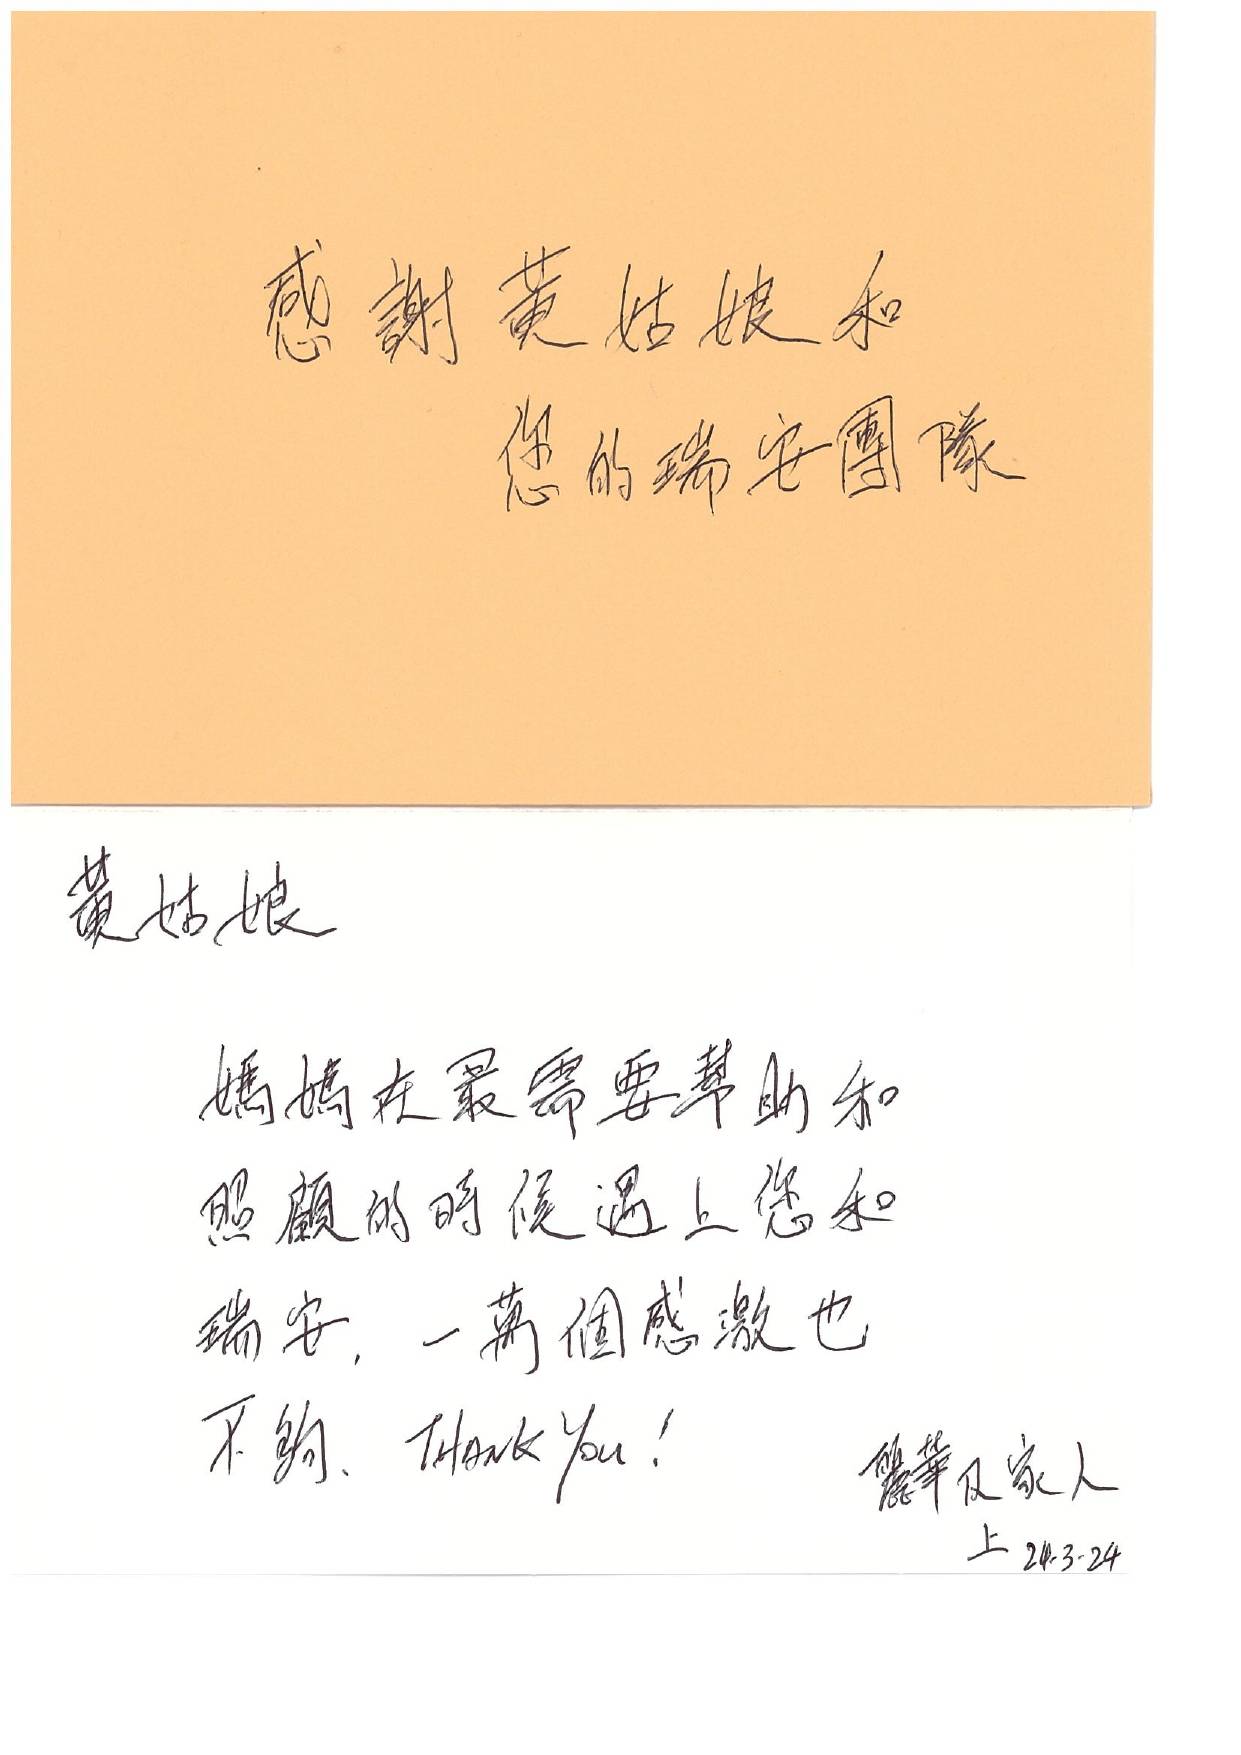 感謝黃姑娘和
您的瑞安團隊
黃姑娘
媽媽在最需要幫助和
照顧的時候遇上您和
瑞安，一萬個感激也
不夠、THANK You!
麗華及家人
上 24-3-24